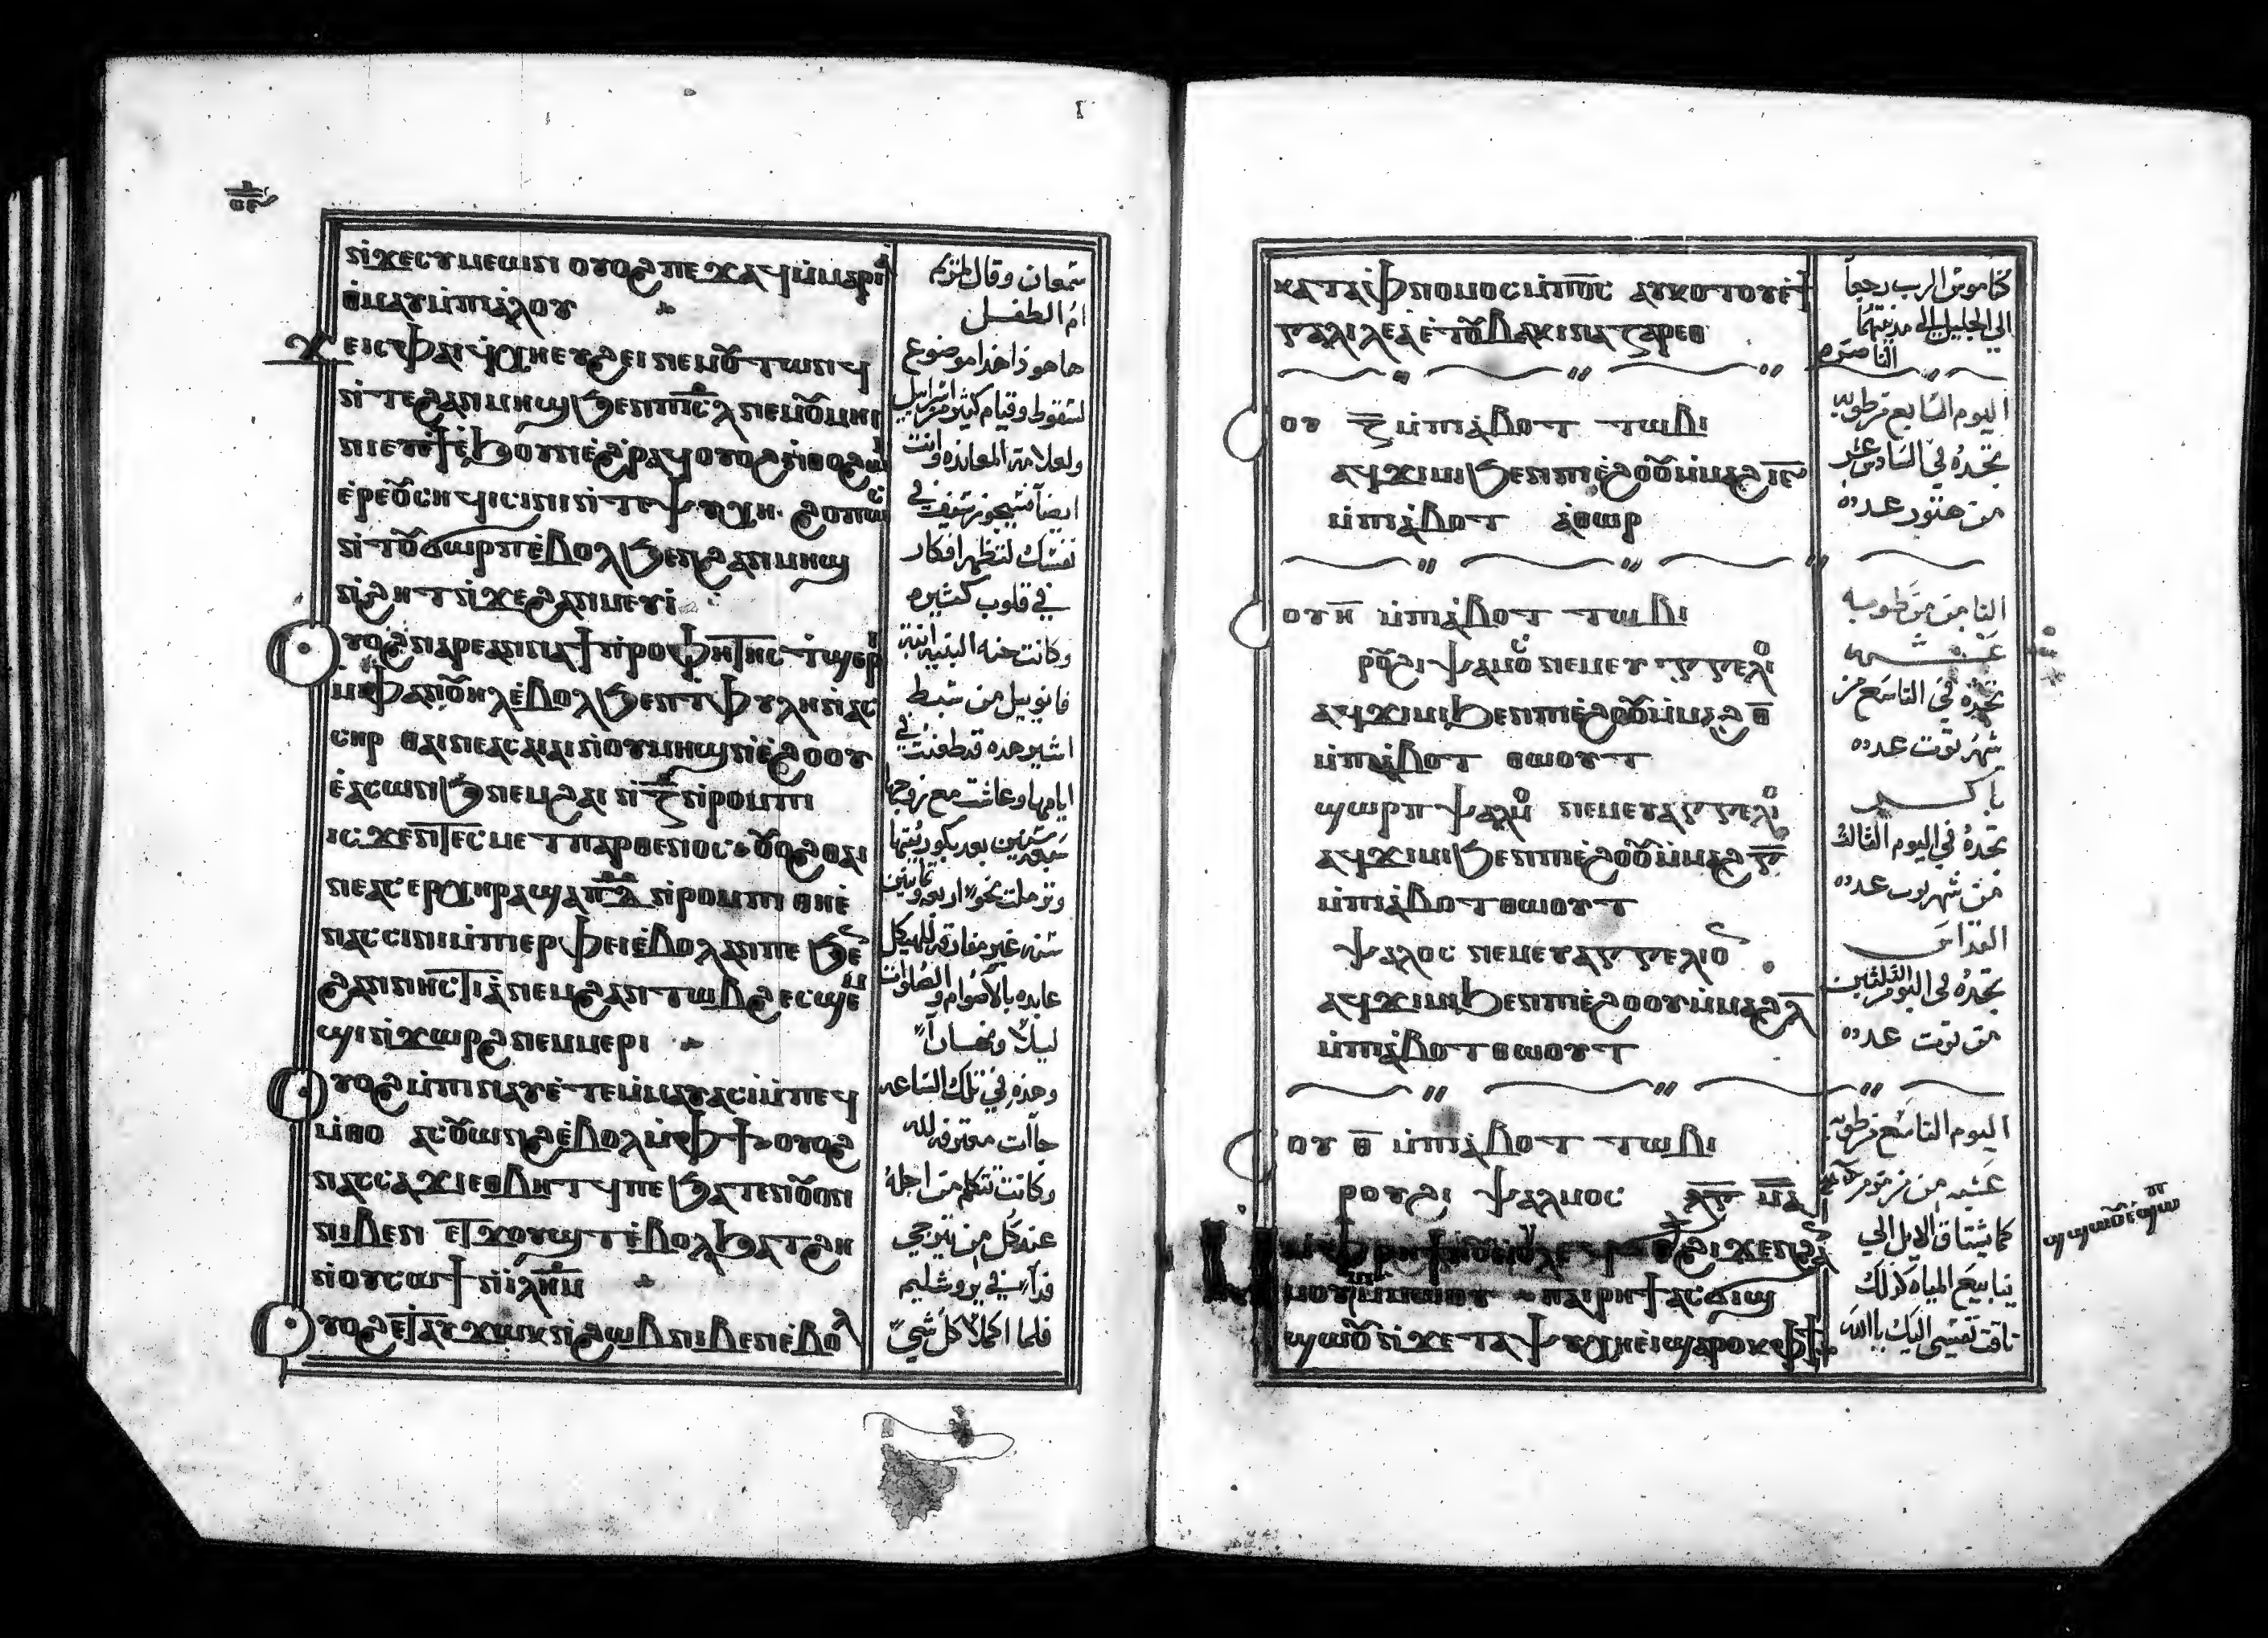 ⲛ̀ϫⲉⲥⲩⲙⲉⲱⲛ ⲟⲩⲟϩ ⲡⲉϫⲁϥ ⲙ̀ⲙⲁⲣⲓⲁ
ⲑ̀ⲙⲁⲩ ⲙ̀ⲡⲓⲁ̀ⲗⲟⲩ
ϫⲉ ⲓⲥ ⲫⲁⲓ ϥ̀ⲭⲏ ⲉⲩϩⲉⲓ ⲛⲉⲙ ⲟⲩⲧⲱⲛϥ
ⲛ̀ⲧⲉ ϩⲁⲛⲙⲏϣ ϧⲉⲛ ⲡⲓⲥⲗ ⲛⲉⲙ ⲟⲩⲙⲏⲓ
ⲛⲓ ⲉⲩϯ ⲉ̀ϧⲟⲩⲛ ⲉ̀ϩⲣⲁϥ ⲟⲩⲟϩ ⲛ̀ⲑⲟ ϩⲱⲓ
ⲉ̀ⲣⲉ ⲟⲩⲥⲏϥⲓ ⲥⲓⲛⲓ ⲛ̀ⲧⲉⲯⲩⲭⲏ ϩⲟⲡⲱⲥ
ⲛ̀ⲧⲟⲩϭⲱⲣⲡ ⲉ̀ⲃⲟⲗ ϧⲉⲛ ϩⲁⲛⲙⲏϣ
ⲛ̀ϩⲏⲧ ⲛ̀ϫⲉ ϩⲁⲛⲙⲉⲩⲓ̀
ⲟⲩⲟϩ ⲛⲁⲣⲉ ⲁⲛⲛⲁ ϯⲡⲣⲟⲫⲏⲧⲏⲥ ⲧ̀ϣⲉⲣⲓ
ⲙ̀ⲫⲁⲛⲟⲩⲏⲗ ⲉ̀ⲃⲟⲗ ϧⲉⲛ ⲧ̀ⲫⲩⲗⲏ ⲛ̀ⲁⲥ
ⲥⲏⲣ ⲑⲁⲓ ⲛⲉ ⲁⲥⲁⲓⲁⲓ ⲛ̀ⲟⲩⲙⲏϣ ⲛ̀ⲉ̀ϩⲟⲟⲩ
ⲉ̀ⲁⲥⲱⲛϧ ⲛⲉⲙ ϩⲁⲓ ⲛ̀ⲍ̅ ⲛ̀ⲣⲟⲙⲡⲓ
ⲓⲥϫⲉⲛ ⲧⲉⲥⲙⲉⲧⲡⲁⲣⲑⲉⲛⲟⲥ ⲟⲩⲟϩ ⲑⲁⲓ
ⲛⲉ ⲁⲥⲉⲣⲭⲏⲣⲁ ϣⲁ ⲡ̅ⲇ̅ ⲛ̀ⲣⲟⲙⲡⲓ ⲑⲏⲉ̀
ⲛⲁⲥⲥⲓⲛⲓ ⲙ̀ⲡⲓⲉⲣⲫⲉⲓ ⲉ̀ⲃⲟⲗ ⲁⲛ ⲡⲉ ϧⲉⲛ
ϩⲁⲛⲛⲏⲥⲧⲓⲁ̀ ⲛⲉⲙ ϩⲁⲛⲧⲱⲃϩ ⲉⲥϣⲉⲙ
ϣⲓ ⲛ̀ϫⲱⲣϩ ⲛⲉⲙ ⲙⲉⲣⲓ
ⲟⲩⲟϩ ⲙ̀ⲡⲓⲛⲁⲩ ⲉ̀ⲧⲉⲙ̀ⲙⲁⲩ ⲁⲥⲓ̀ ⲙ̀ⲡⲉϥ
ⲙ̀ⲑⲟ ⲁⲥⲟⲩⲱⲛϩ ⲉ̀ⲃⲟⲗ ⲙ̀ⲫϯ ⲟⲩⲟϩ
ⲛⲁⲥⲥⲁϫⲓ ⲉⲑⲃⲏⲧϥ ⲡⲉ ϧⲁⲧⲉⲛ ⲟⲩⲟⲛ
ⲛⲓⲃⲉⲛ ⲉⲧϫⲟⲩϣⲧ ⲉ̀ⲃⲟⲗ ϧⲁⲧϩⲏ
ⲛ̀ⲟⲩⲥⲱϯ ⲛ̀ⲓ̀ⲗⲏⲙ̅
ⲟⲩⲟϩ ⲉⲧⲁⲩϫⲱⲕ ⲛ̀ϩⲱⲃ ⲛⲓⲃⲉⲛ ⲉ̀ⲃⲟⲗ
سمعان وقال لمريم
ام الطفل
ها هو ذا هذا موضوع
لسقوط وقيام كثير من اسراييل
ولعلامة المعانده وانت
ايضا سيجوز سيف في
نفسك لتظهر افكار
في قلوب كثيره
وكانت حنه النبيه ابنة
فانوييل من سبط
اشير هذه قد طعنت في
ايامها وعاشت مع زوجها
سبع سنين بعد بكوريتها
وترملت نحو اربعه وثمانين
سنه غير مفارقه للهيكل
عابده بالاصوام والصلوات
ليلا ونهارا
وهذه في تلك الساعه
جاات معترفه لله
وكانت تتكلم من اجله
عند كل من يترجى
فداء في يروشليم
فلما اكملا كل شي
ⲕⲁⲧⲁ ⲫ̀ⲛⲟⲙⲟⲥ ⲙ̀ⲡⲟ̅ⲥ̅ ⲁⲩⲕⲟⲧⲟⲩ ⲉ̀ϯ
ⲅⲁⲗⲓⲗⲉⲁ ⲉ̀ⲧⲟⲩⲃⲁⲕⲓ ⲛⲁⲍⲁⲣⲉⲑ
ⲥⲟⲩ ⲍ̅ ⲙ̀ⲡⲓⲁ̀ⲃⲟⲧ ⲧⲱⲃⲓ
ⲁϥⲭⲏ ϧⲉⲛ ⲡⲓⲉ̀ϩⲟⲟⲩ ⲙ̀ⲙⲁϩ ⲓ̅ⲋ̅
ⲙ̀ⲡⲓⲁ̀ⲃⲟⲧ ⲁ̀ⲑⲱⲣ
ⲥⲟⲩ ⲏ̅ ⲙ̀ⲡⲓⲁ̀ⲃⲟⲧ ⲧⲱⲃⲓ
ⲣⲟⲩϩⲓ ⲯⲁⲗⲙⲟⲥ ⲛⲉⲙ ⲉⲩⲁⲅⲅⲉⲗⲓⲟⲛ
ⲁϥⲭⲏ ϧⲉⲛ ⲡⲓⲉ̀ϩⲟⲟⲩ ⲙ̀ⲙⲁϩ ⲑ̅
ⲙ̀ⲡⲓⲁ̀ⲃⲟⲧ ⲑⲱⲟⲩⲧ
ϣⲱⲣⲡ ⲯⲁⲗⲙⲟⲥ ⲛⲉⲙ ⲉⲩⲁⲅⲅⲉⲗⲓⲟⲛ
ⲁϥⲭⲏ ϧⲉⲛ ⲡⲓⲉ̀ϩⲟⲟⲩ ⲙ̀ⲙⲁϩ ⲅ̅
ⲙ̀ⲡⲓⲁ̀ⲃⲟⲧ ⲑⲱⲟⲩⲧ
ⲯⲁⲗⲙⲟⲥ ⲛⲉⲙ ⲉⲩⲁⲅⲅⲉⲗⲓⲟⲛ
ⲁϥⲭⲏ ϧⲉⲛ ⲡⲓⲉ̀ϩⲟⲟⲩ ⲙ̀ⲙⲁϩ ⲗ̅
ⲙ̀ⲡⲓⲁ̀ⲃⲟⲧ ⲑⲱⲟⲩⲧ
ⲥⲟⲩ ⲑ̅ ⲙ̀ⲡⲓⲁ̀ⲃⲟⲧ ⲧⲱⲃⲓ
ⲣⲟⲩϩⲓ ⲯⲁⲗⲙⲟⲥ ⲙ̅ⲁ̅
ⲙ̀ⲙⲱⲟⲩ ⲡⲁⲓⲣⲏϯ ⲁⲥϭⲓϣ
ϣⲱⲟⲩ ⲛ̀ϫⲉ ⲧⲁⲯⲩⲭⲏ ⲉ̀ⲓ̀ ϣⲁⲣⲟⲕ ⲫϯ
كناموس الرب رجعا
الى الجليل الى مدينتهما
الناصره
اليوم السابع من طوبه
تجده في السادس عشر
من هتور عدده
الثامن من طوبه
عشيه
تجده في التاسع من
شهر توت عدده
باكر
تجده في اليوم الثالث
من شهر توت عدده
القداس
تجده في اليوم الثلثين
من توت عدده
اليوم التاسع من طوبه
عشيه من مزمور
كما يشتاق الايل الى
ينابيع المياه كذلك
تاقت نفسي اليك يا الله